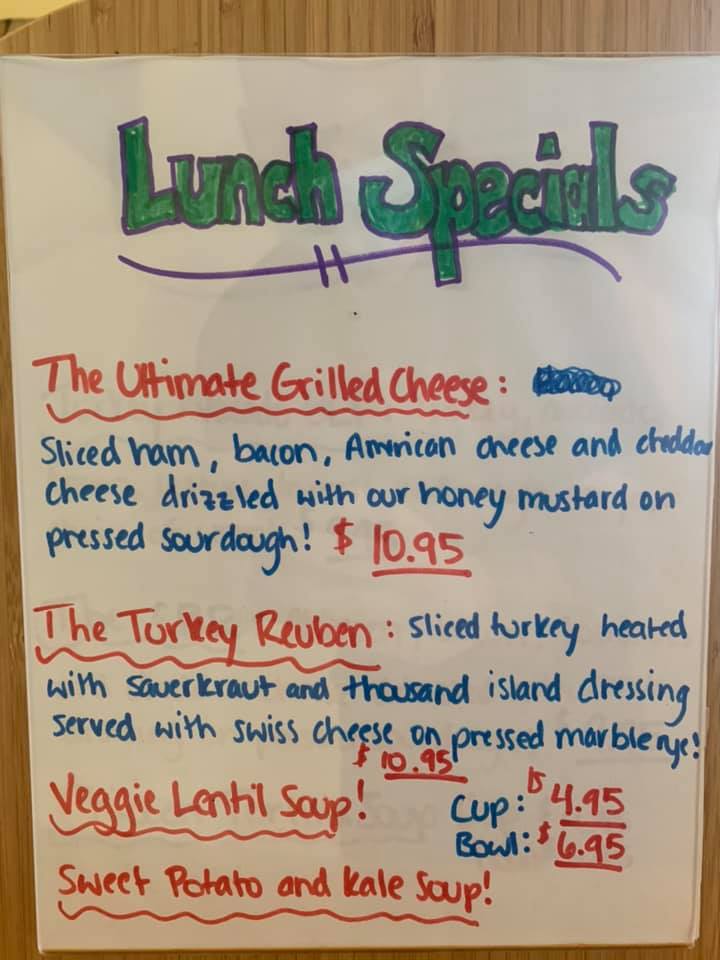 Lunch Specials
The Ultimate Grilled Cheese:
Sliced ham, bacon, American cheese and cheddar
cheese drizzled with our honey mustard on
pressed sourdough! $ 10.95
The Turkey Reuben: Sliced turkey heated
with sauerkraut and thousand island dressing
served with swiss cheese on pressed marble rye!
$ 10.95
Veggie Lentil Soup! Cup: $ 4.95
Bowl: $ 6.95
Sweet Potato and Kale Soup!